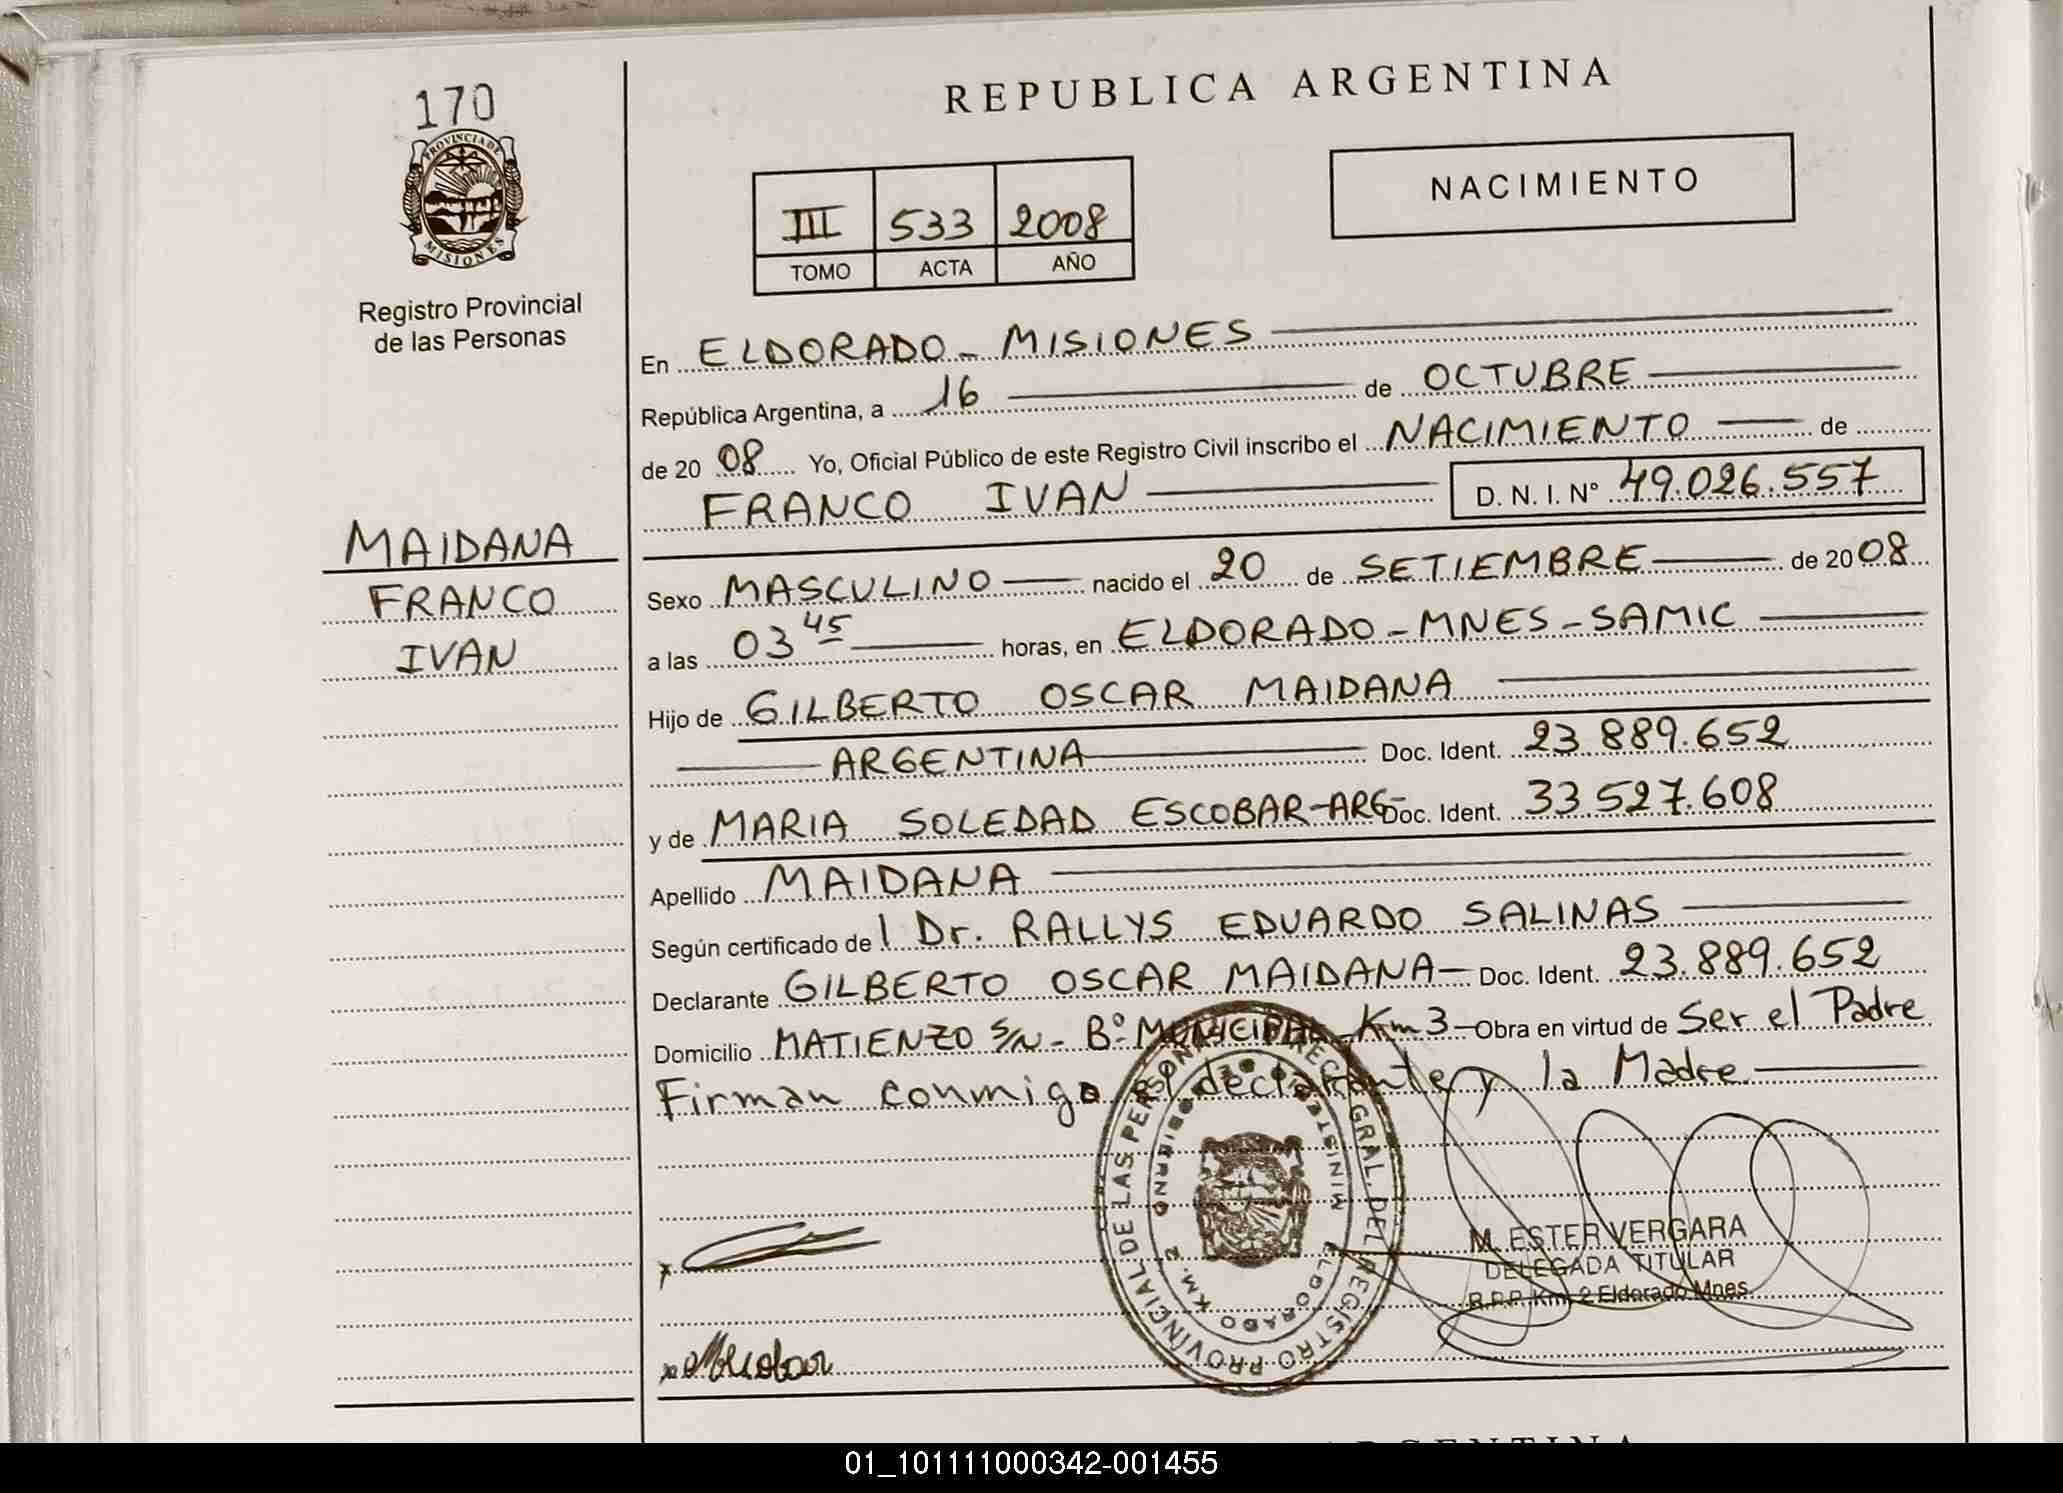 170
PROVINCIA DE
MISIONES
Registro Provincial
de las Personas
MAIDANA
FRANCO
IVAN
REPUBLICA ARGENTINA
III 533 2008
TOMO ACTA AÑO
NACIMIENTO
En ELDORADO - MISIONES
República Argentina, a 16 de OCTUBRE
de 20 08 Yo, Oficial Público de este Registro Civil inscribo el NACIMIENTO de
FRANCO IVAN D. N. I. Nº 49.026.557
Sexo MASCULINO nacido el 20 de SETIEMBRE de 2008
a las 03 45 horas, en ELDORADO - MNES - SAMIC
Hijo de GILBERTO OSCAR MAIDANA
ARGENTINA Doc. Ident. 23.889.652
y de MARIA SOLEDAD ESCOBAR - ARG- Doc. Ident. 33.527.608
Apellido MAIDANA
Según certificado del Dr. RALLYS EDUARDO SALINAS
Declarante GILBERTO OSCAR MAIDANA - Doc. Ident. 23.889.652
Domicilio MATIENZO S/N - Bº MUNICIPAL Km 3 - Obra en virtud de Ser el Padre
Firman conmigo el declarante y la Madre.
DIREC. GRAL. DEL REGISTRO PROVINCIAL DE LAS PERSONAS
MINISTERIO DE GOBIERNO
ELDORADO KM. 2
M. ESTER VERGARA
DELEGADA TITULAR
R.P.P. Km. 2 Eldorado Mnes.
MEscobar
ARGENTINA
01_101111000342-001455